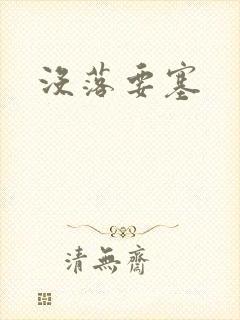 没落要塞
清無齋